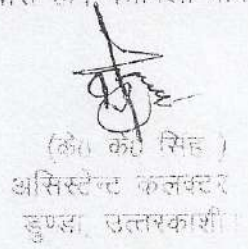 (के० के० सिंह)
असिस्टेन्ट कलक्टर
डुण्डा, उत्तरकाशी।